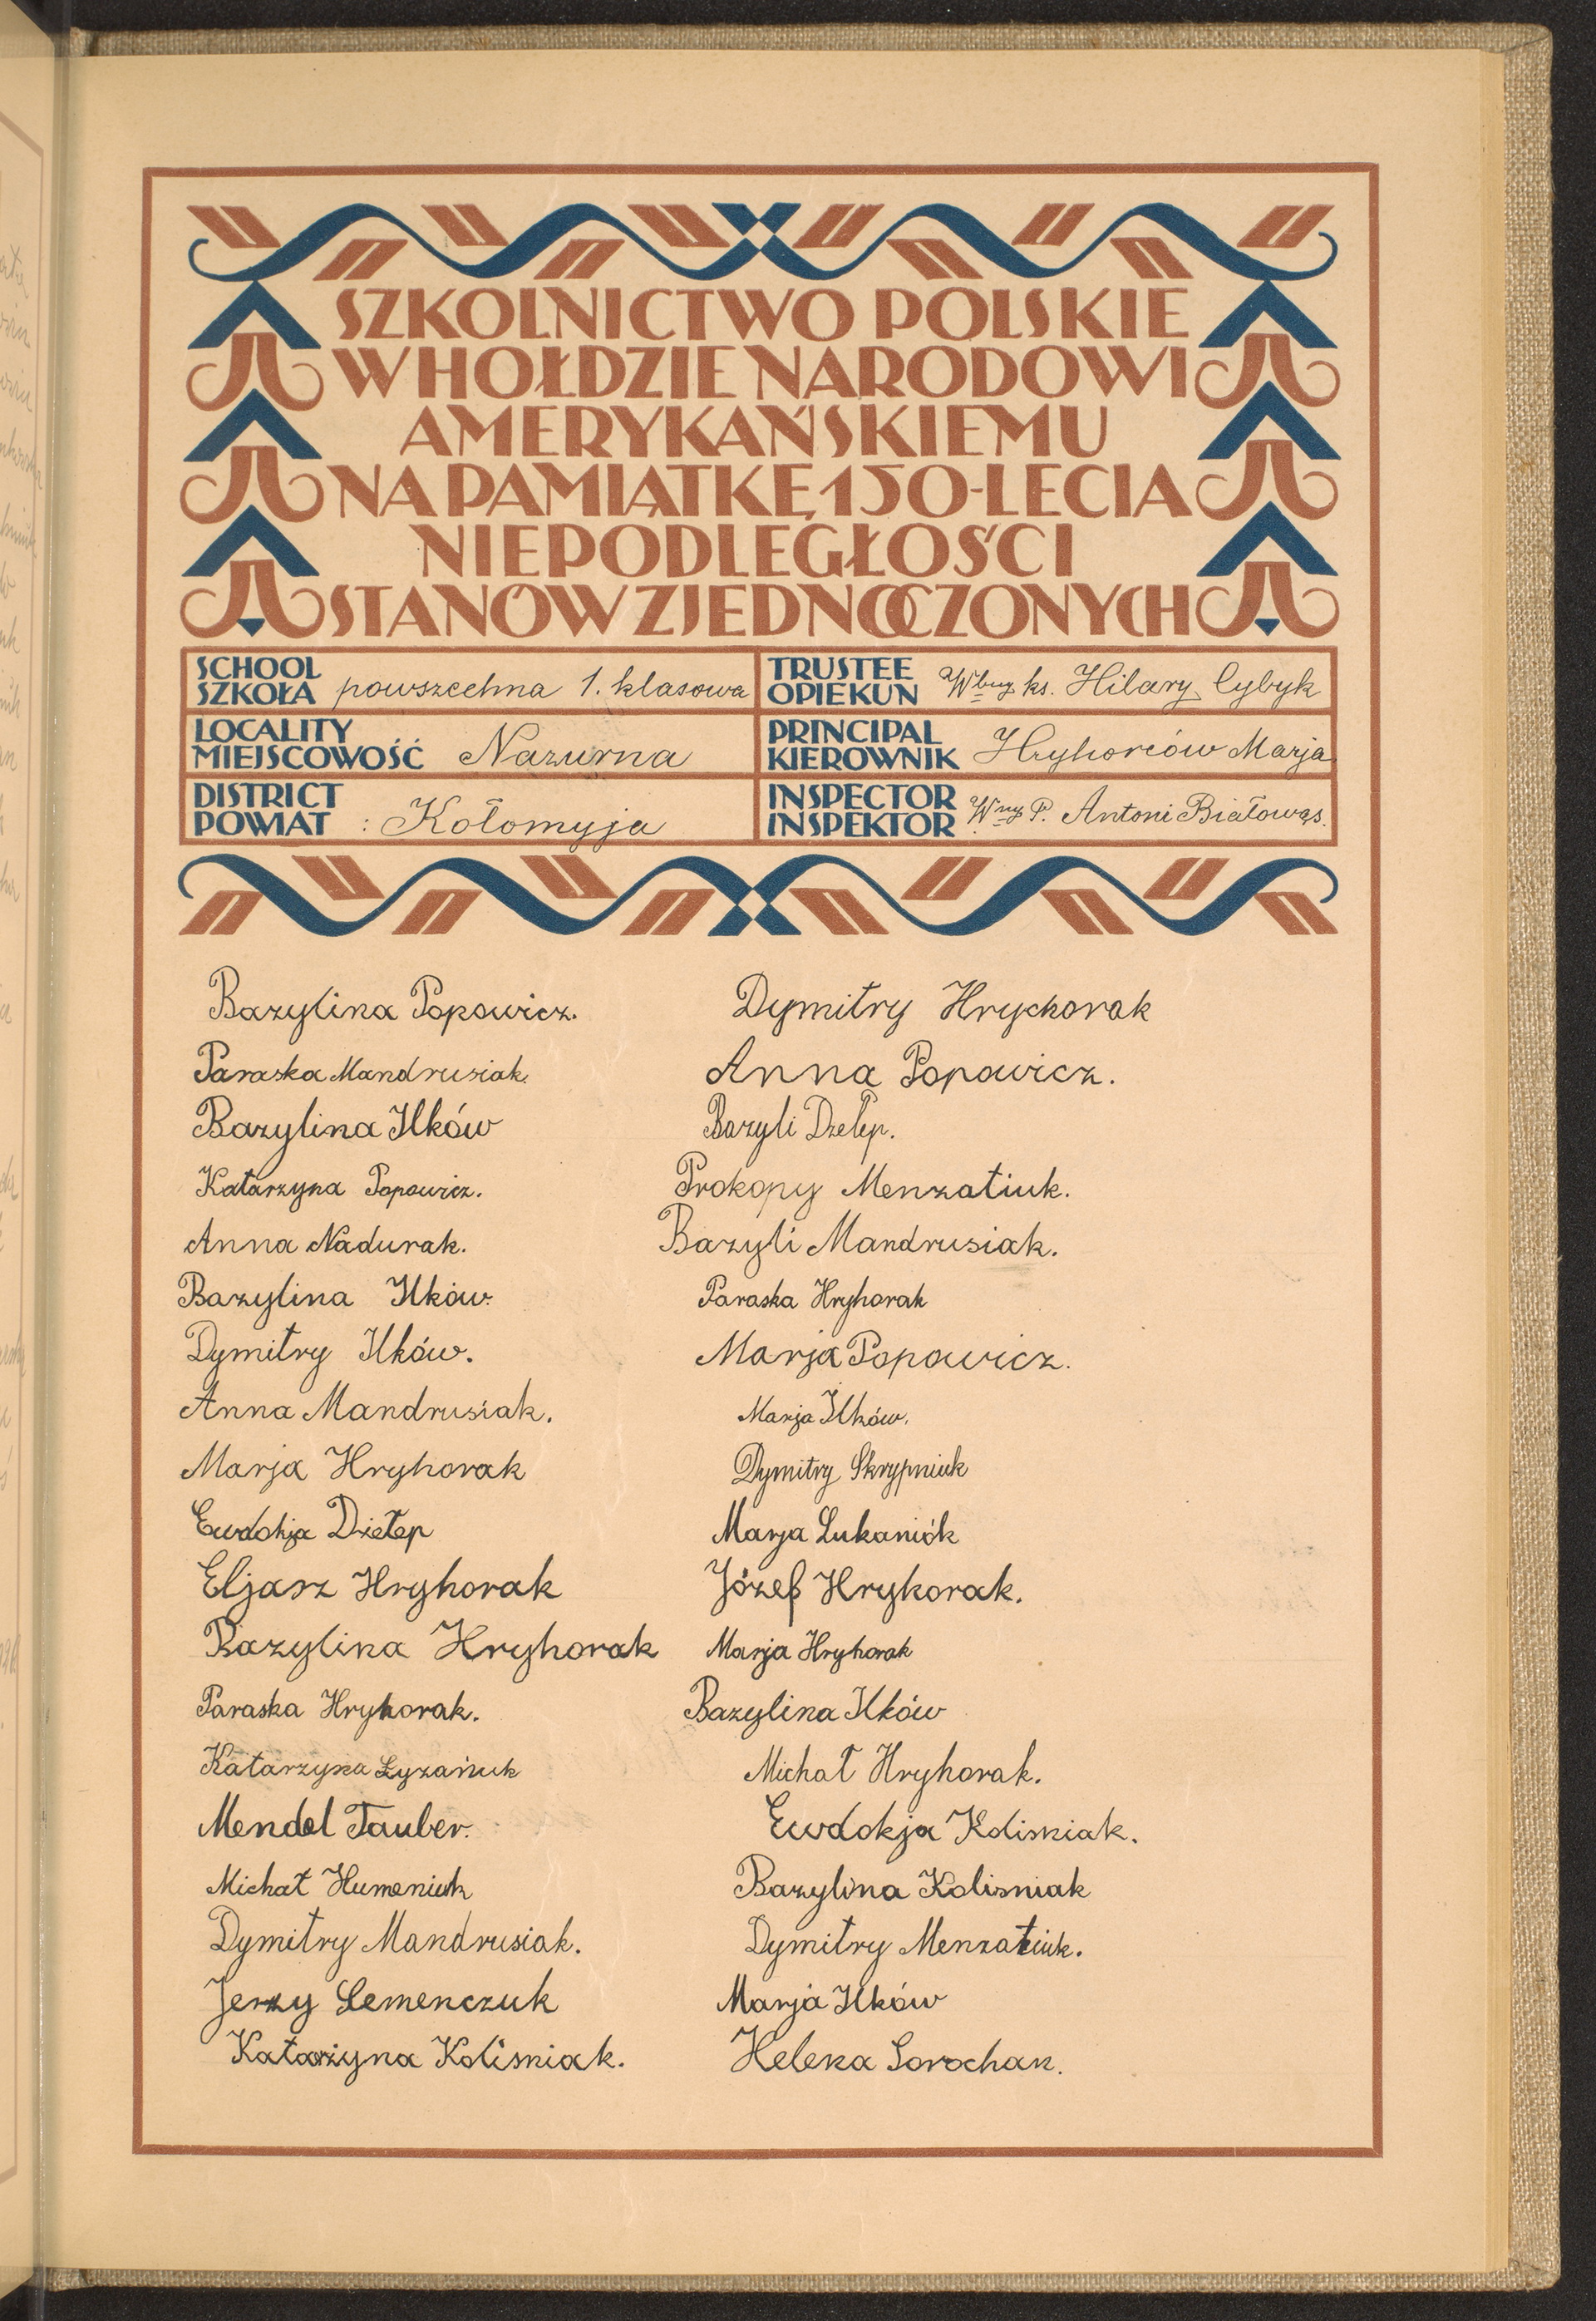 SZKOLNICTWO POLSKIE
W HOŁDZIE NARODOWI
AMERYKAŃSKIEMU
NA PAMIĄTKĘ 150-LECIA
NIEPODLEGŁOŚCI
STANÓW ZJEDNOCZONYCH
SCHOOL
SZKOŁA powszechna 1. klasowa
TRUSTEE
OPIEKUN ks. Hilary Cybyk
LOCALITY
MIEJSCOWOŚĆ Nazurna
PRINCIPAL
KIEROWNIK Hryhorców Marja
DISTRICT
POWIAT : Kołomyja
INSPECTOR
INSPEKTOR Wny P. Antoni Białowąs.
Bazylina Popowicz.
Paraska Mandrusiak.
Bazylina Ilków
Katarzyna Popowicz.
Anna Nadurak.
Bazylina Ilków.
Dymitry Ilków.
Anna Mandrusiak.
Marja Hryhorak
Ewdokja Dżełep
Eljasz Hryhorak
Bazylina Hryhorak
Paraska Hryhorak.
Katarzyna Łyzańuk
Mendel Tauber.
Michał Humeniuk
Dymitry Mandrusiak.
Jerzy Semenczuk
Katarzyna Kolisniak.
Dymitry Hryckorak
Anna Popowicz.
Bazyli Dzełep.
Prokopy Menzatiuk.
Bazyli Mandrusiak.
Paraska Hryhorak
Marja Popowicz.
Marja Ilków.
Dymitry Skrypniuk
Marja Lukaniók
Józef Hryhorak.
Marja Hryhorak
Bazylina Ilków
Michał Hryhorak.
Ewdokja Kolisniak.
Bazylina Kolisniak
Dymitry Menzatiuk.
Marja Ilków
Helena Sorochan.